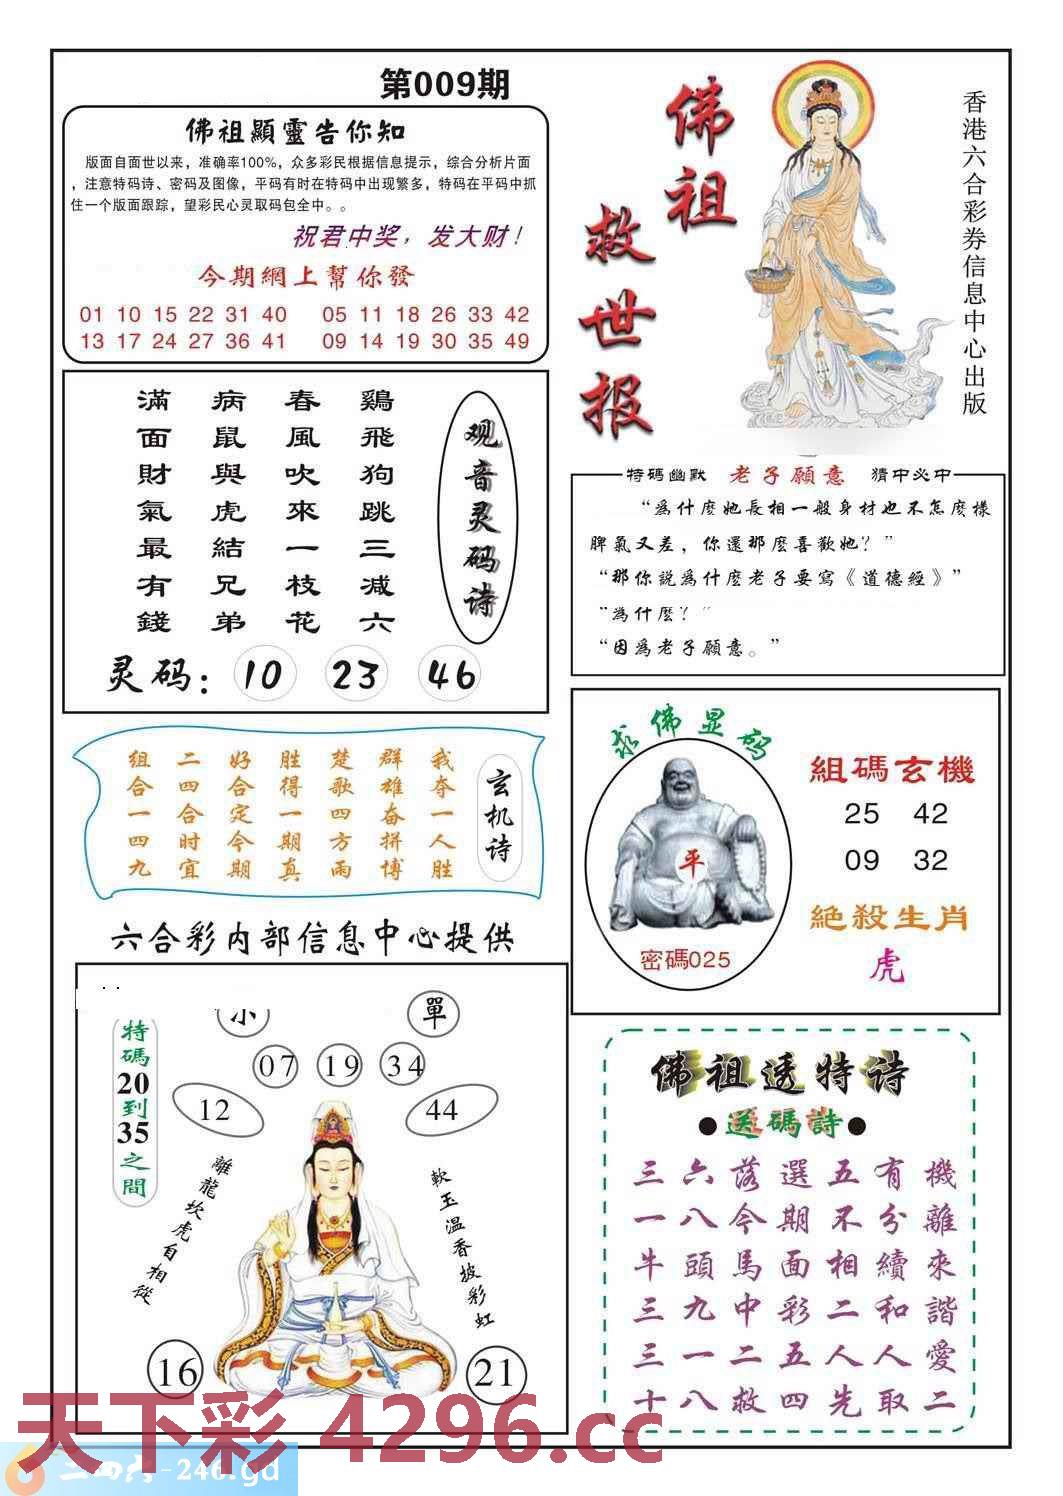 第009期
佛祖顯靈告你知
版面自面世以来，准确率100%，众多彩民根据信息提示，综合分析片面
，注意特码诗、密码及图像，平码有时在特码中出现繁多，特码在平码中抓
住一个版面跟踪，望彩民心灵取码包全中。。
祝君中奖，发大财！
今期網上幫你發
01 10 15 22 31 40 05 11 18 26 33 42
13 17 24 27 36 41 09 14 19 30 35 49
佛祖
救世报
香港六合彩券信息中心出版
观音灵码诗
鷄飛狗跳三减六
春風吹來一枝花
病鼠與虎結兄弟
滿面財氣最有錢
灵码：10 23 46
特碼幽默 老子願意 猜中必中
“為什麼她長相一般身材也不怎麼樣
脾氣又差，你還那麼喜歡她？”
“那你説為什麼老子要寫《道德經》”
“為什麼？”
“因為老子願意。”
玄机诗
我夺一人胜
群雄奋拼博
楚歌四方雨
胜得一期真
好合定今期
二四合时宜
组合一四九
求佛显码
平
密碼025
組碼玄機
25 42
09 32
絕殺生肖
虎
六合彩内部信息中心提供
小
單
07 19 34
12
44
特碼20到35之間
離龍坎虎自相從
軟玉温香披彩虹
16
21
佛祖透特诗
●送碼詩●
三六落選五有機
一八今期不分離
牛頭馬面相續來
三九中彩二和諧
三一二五人人愛
十八救四先取二
天下彩 4296.cc
二四六-246.gd